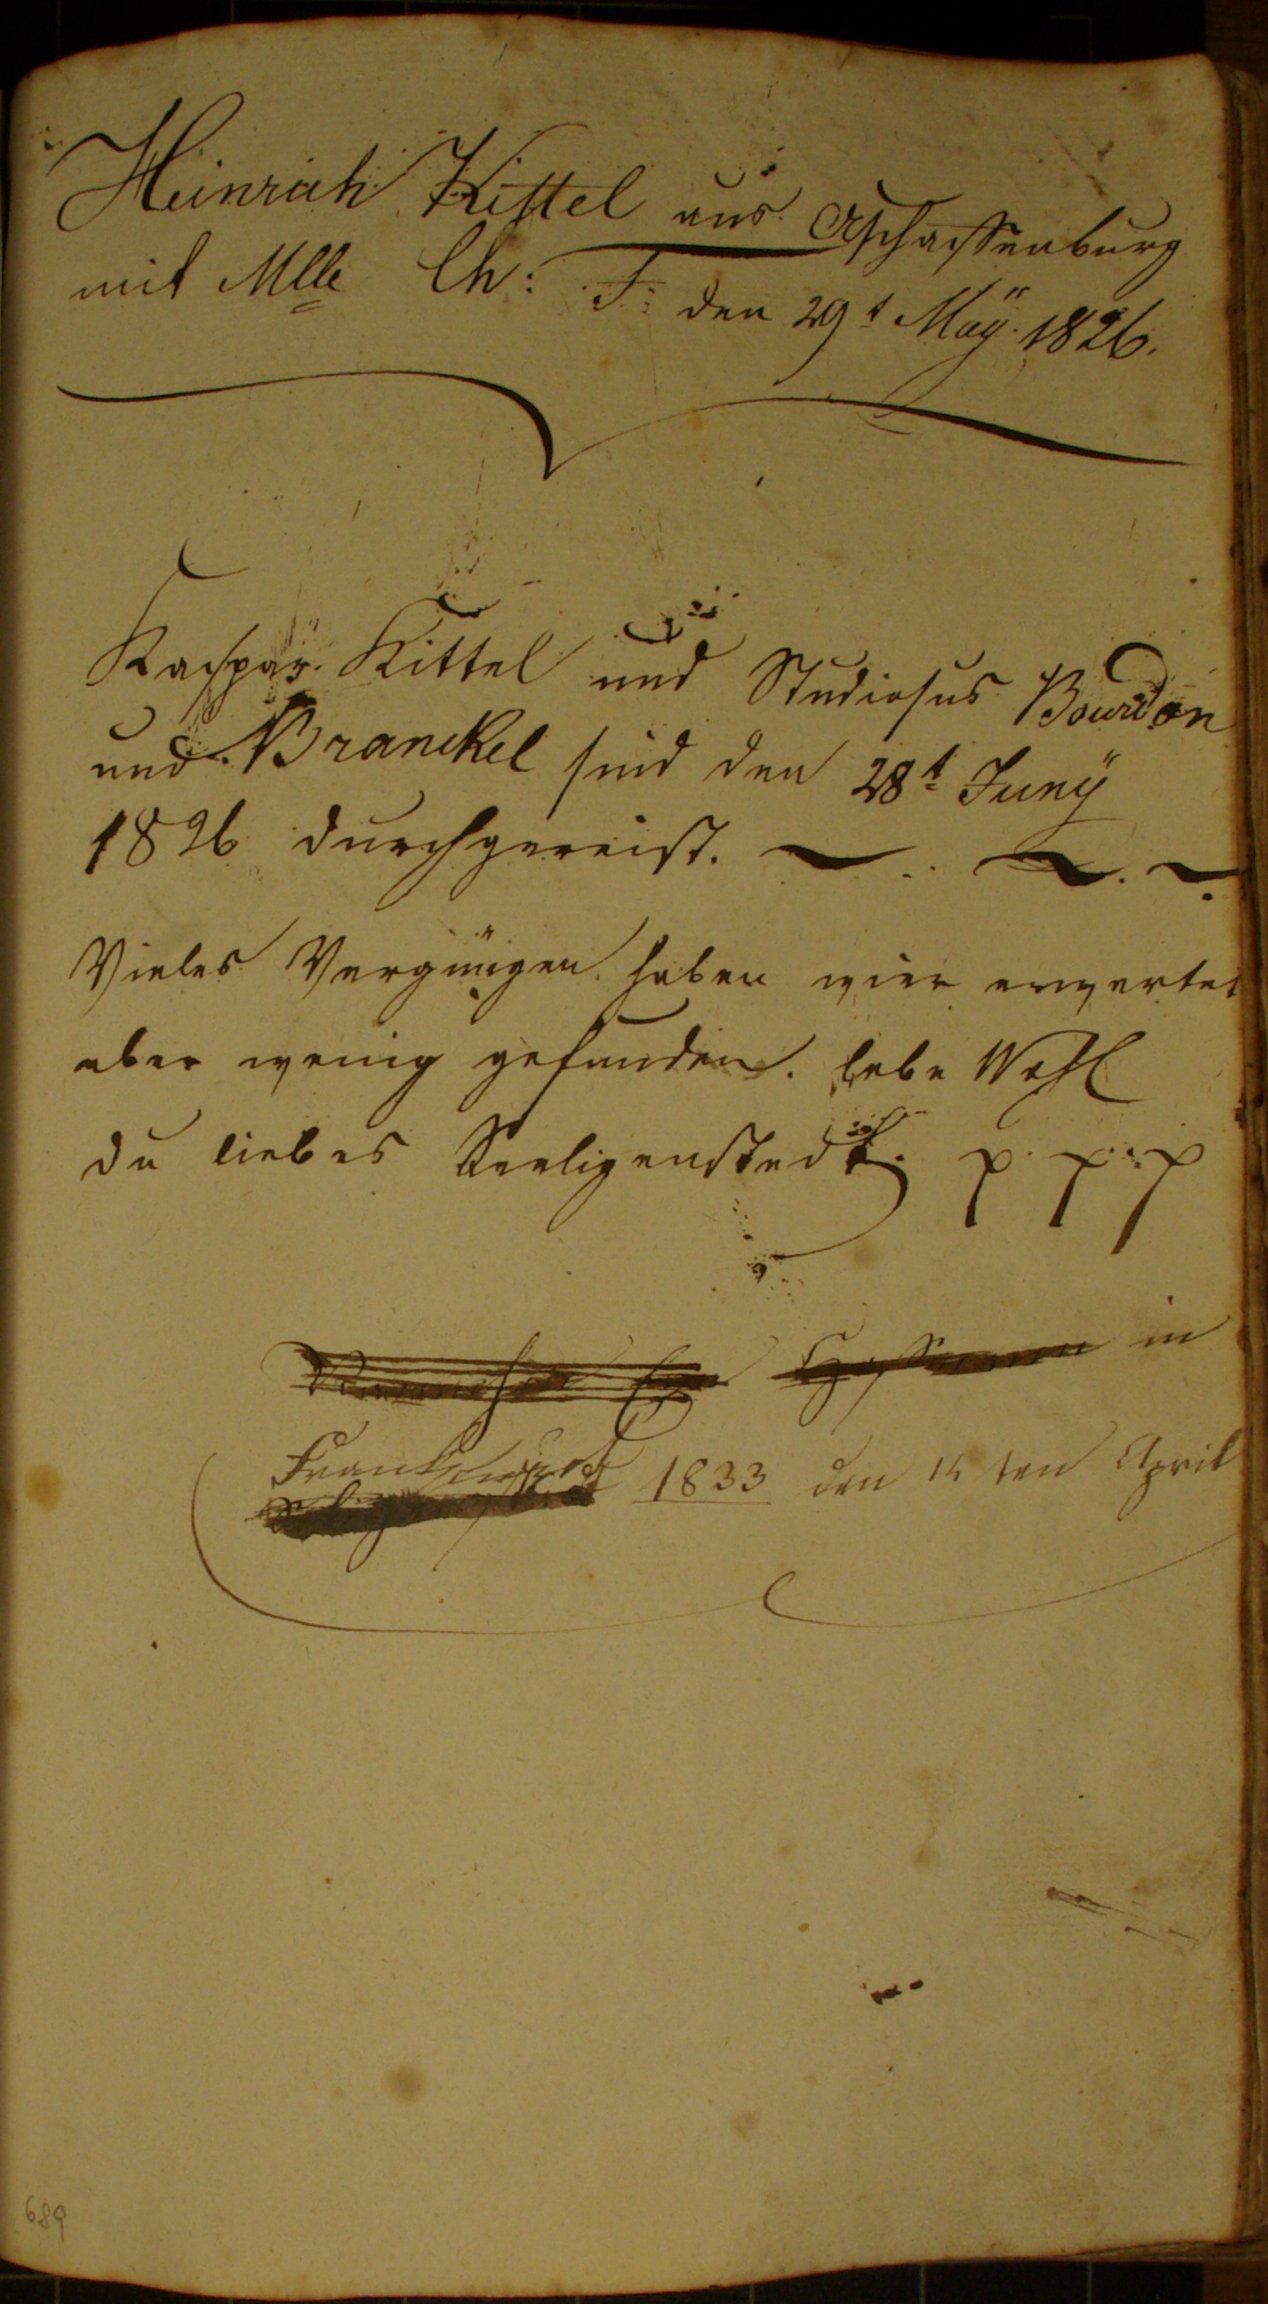 Heinrich Kittel aus Aschaffenburg
mit Mlle Ch: F: den 29t Maÿ 1826.
Kaspar Kittel und Studiosus Bourdon
und Branckel sind den 28t Junÿ
1826 durchgereist.
Vieles Vergnügen haben wier erwartet
aber wenig gefunden. Lebe Wohl
du liebes Seeligenstedt. p. p. p
in
Frankfurt 1833 den 15ten April
689